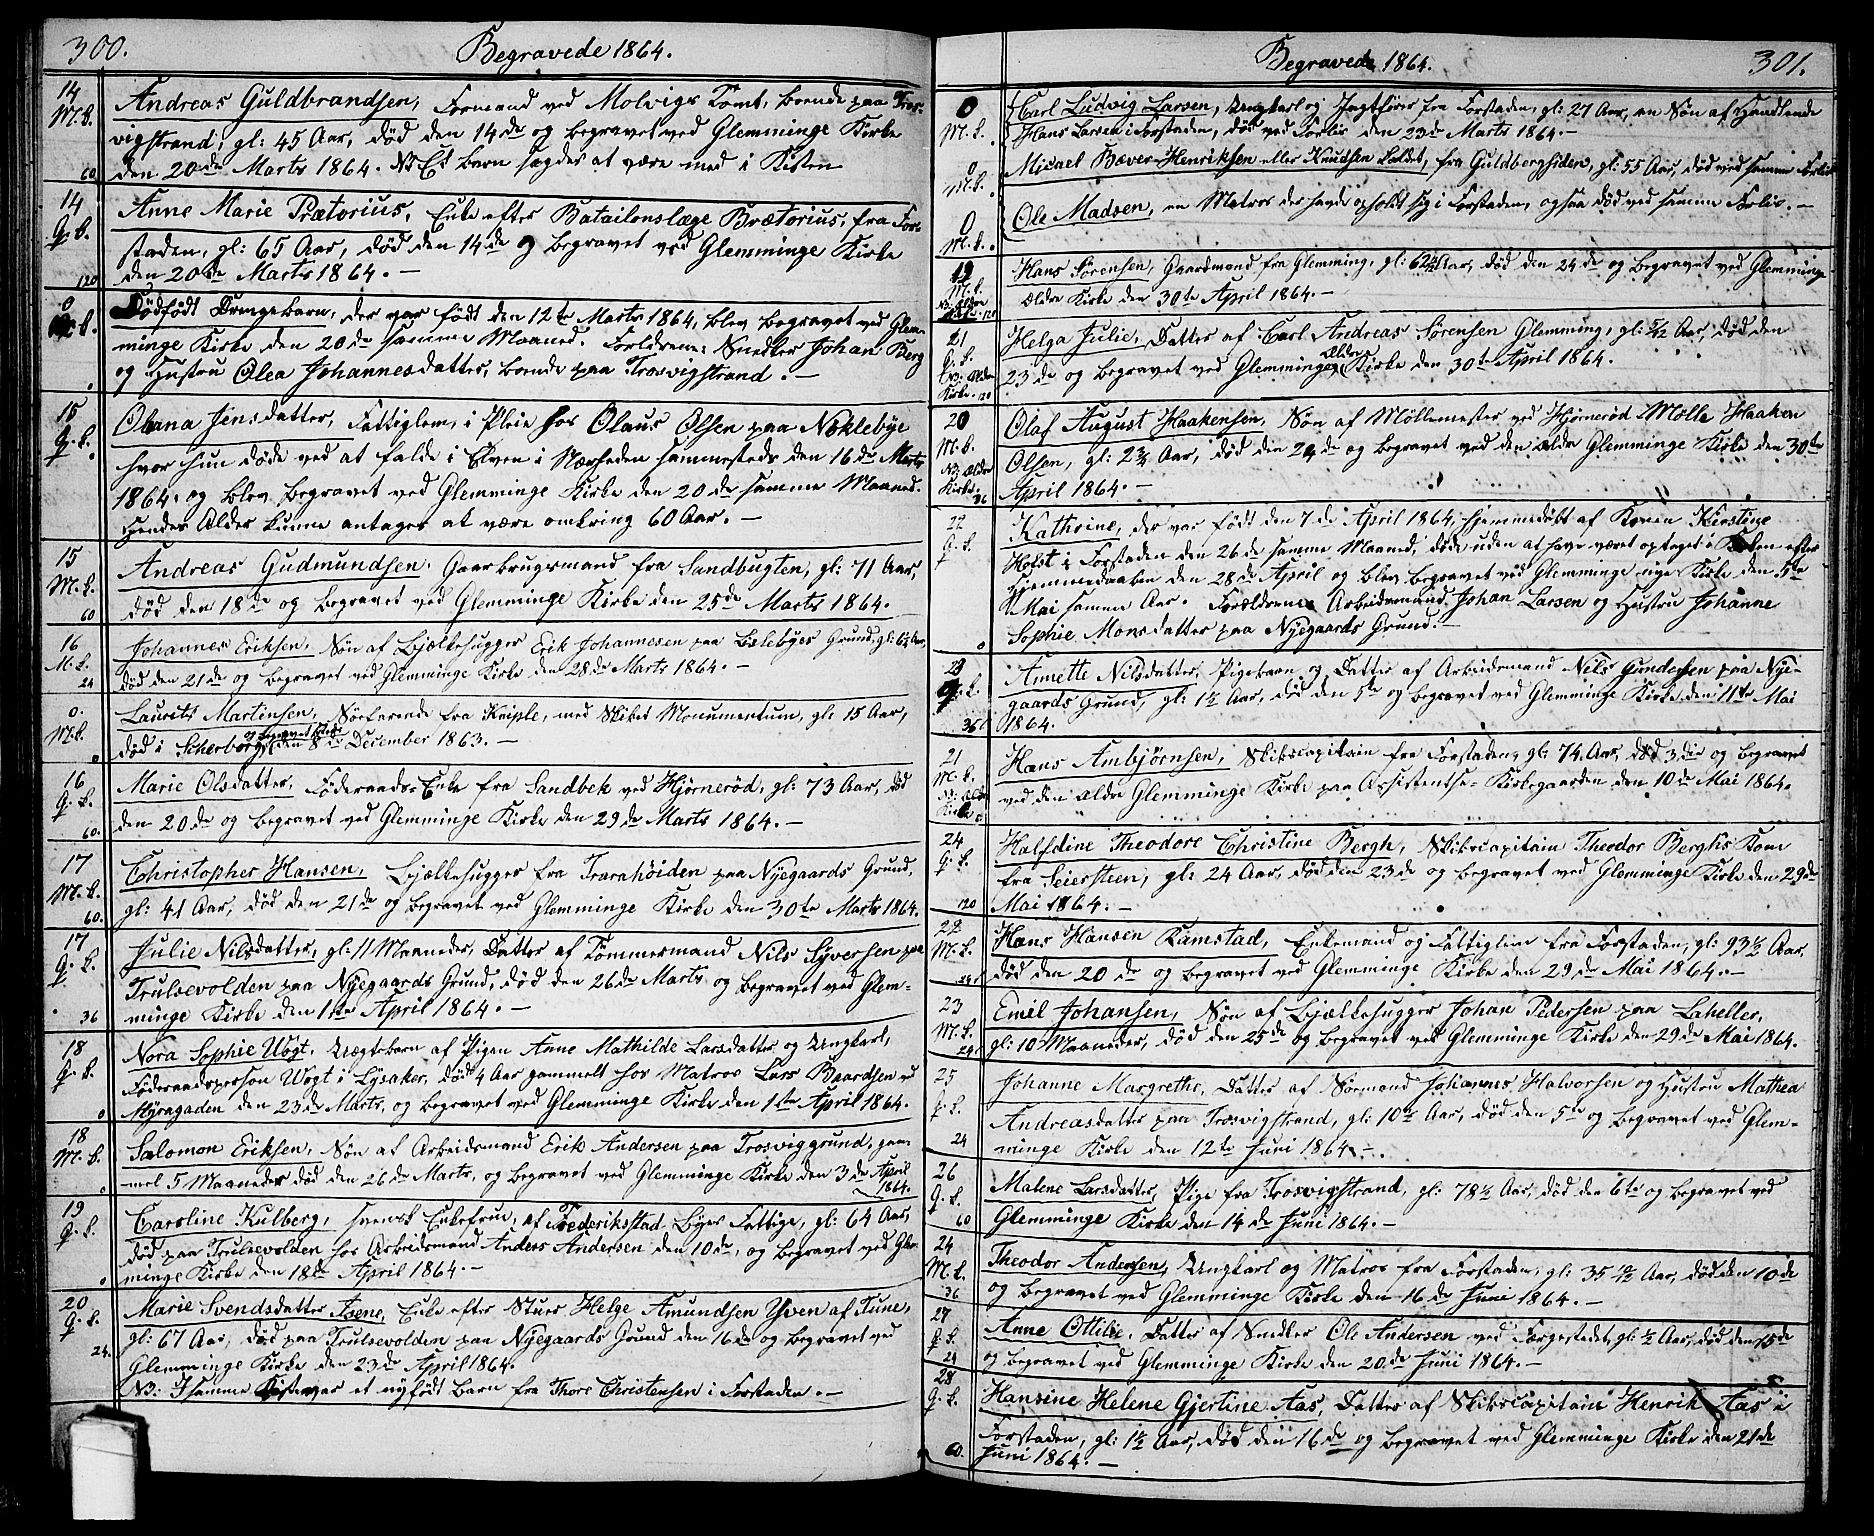 300.
Begravede 1864.
14 Andreas Guldbrandsen, Formand ved Molvigs Tomt, boende paa Tros-
M. K. vigstrand, gl: 45 Aar, død den 14de og begravet ved Glemminge Kirke
60 den 20de Marts 1864. NB Et barn sagdes at være med i Kisten
14 Anne Marie Prætorius, Enke efter Batailonslæge Prætorius, fra For-
Q. K. staden, gl: 65 Aar, død den 14de og begravet ved Glemminge Kirke
120 den 20de Marts 1864. —
0 Dødfødt Drengebarn, der var født den 12te Marts 1864, blev begravet ved Glem-
minge Kirke den 20de samme Maaned. Forældrene: Smedker Johan Berg
og Hustru Olea Johannesdatter, boende paa Trosvigstrand. —
15 Olana Jensdatter, Fattiglem, i Pleie hos Olaus Olsen paa Noklebye
Q. K. hvor hun døde ved at falde i Elven i Nærheden sammesteds den 16de Marts
1864. og blev begravet ved Glemminge Kirke den 20de samme Maaned.
Hendes Alder kunne antages at være omkring 60 Aar. —
15 Andreas Gudmundsen, Gaarbrugsmand fra Sandbugten, gl: 71 Aar,
M. K. 60 død den 18de og begravet ved Glemminge Kirke den 25de Marts 1864. —
16 Johannes Eriksen, Søn af Bjælkehugger Erik Johannesen paa Lislebyes Grund, gl: 6½ Aar,
M. K. 24 død den 21de og begravet ved Glemminge Kirke den 28de Marts 1864. —
0. Laurits Martinsen, Søfarende fra Kniple, med Skibet Monumentum, gl: 15 Aar,
M. K. 0 død i Scherborg og begravet den 8de December 1863. —
16 Marie Olsdatter, Føderaads-Enke fra Sandbek ved Hjørnerød, gl: 73 Aar, død
Q. K. 60. den 20de og begravet ved Glemminge Kirke den 29de Marts 1864. —
17 Christopher Hansen, Bjælkehugger fra Traranhöiden paa Nyegaards Grund,
M. K. 60. gl: 41 Aar, død den 21de og begravet ved Glemminge Kirke den 30te Marts 1864.
17 Julie Nilsdatter, gl: 11 Maaneder, Datter af Tømmermand Nils Syversen paa
Q. K. Trulsevolden paa Nyegaards Grund, død den 26de Marts og begravet ved Glem-
36 minge Kirke den 1ste April 1864. —
18 Nora Sophie Vogt, Uægte barn af Pigen Anne Mathilde Larsdatter og Ungkarl,
Q. K. Føderaadsperson Vogt i Lysaker, død 4 Aar gammelt hos Matros Lars Baardsen ved
0 Myragaden den 23de Marts, og begravet ved Glemminge Kirke den 1ste April 1864.
18 Salomon Eriksen, Søn af Arbeidsmand Erik Andersen paa Trosviggrund, gam-
M. K. 0 mel 5 Maaneder død den 26de Marts, og begravet ved Glemminge Kirke den 3de April
1864.
19 Caroline Kulberg, svensk Enkefrue, af Frederikstad Byes Fattige, gl: 64 Aar,
Q. K. død paa Trulsevolden hos Arbeidsmand Anders Andersen den 10de, og begravet ved Glem-
0 minge Kirke den 18de April 1864. —
20 Marie Svendsdatter Isene, Enke efter Stuer Helge Amundsen Yven af Tune,
Q. K. gl: 67 Aar, død paa Trulsevolden paa Nyegaards Grund den 16de og begravet ved
24. Glemminge Kirke den 23de April 1864.
NB: I samme Kiste var et nyfødt barn fra Thore Christensen i Forstaden. —
Begravede 1864.
301.
0 Carl Ludvig Larsen, Ungkarl og Jagtfører fra Forstaden, gl: 27 Aar, en Søn af Handlende
M. K. Hans Larsen i Forstaden, død ved Forlis den 23de Marts 1864. —
0 M. K. Micael Bæver Henriksen eller Knudsen kaldet, fra Guldbergsiden, gl: 55 Aar, død ved samme Forlis
0 M. K. Ole Madsen, en Matros der havde opholdt sig i Forstaden, ogsaa død ved samme Forlis. —
19 Hans Sørensen, Gaardmand fra Glemming, gl: 62 Aar, død den 24de og begravet ved Glemminge
M. K. NB: Ældre Kirke 120 ældre Kirke den 30te April 1864. —
21 Helga Julie, Datter af Carl Andreas Sørensen Glemming, gl: 5/12 Aar, død den
Q. K. NB: Ældre Kirke. 120 23de og begravet ved Glemminges Ældre Kirke den 30te April 1864.
20 Olaf August Haakensen, Søn af Møllemester ved Hjørnerød Mølle Haaken
M. K. Olsen, gl: 2¾ Aar, død den 24de og begravet ved den ældre Glemminge Kirke den 30te
NB: Ældre Kirke. 36 April 1864. —
22 Kathrine, der var født den 7de April 1864, hjemmedøbt af Konen Kirstine
Q. K. Holst i Forstaden den 26de samme Maaned, døde uden at have været optaget i Kirken efter
Hjemmedaaben den 28de April og blev begravet ved Glemminge nye Kirke den 5te
Mai samme Aar. Forældrene Arbeidsmand Johan Larsen og Hustru Johanne
0 Sophie Monsdatter paa Nyegaards Grund. —
23 Annette Nilsdatter, Pigebarn og Datter af Arbeidsmand Nils Gundersen paa Nye-
Q. K. gaards Grund, gl: 1½ Aar, død den 5te og begravet ved Glemminge Kirke den 11te Mai
36 1864.
21 Hans Ambjørnsen, Skibscapitain fra Forstaden, gl: 74 Aar, død 3die og begravet
M. K. NB: Ældre Kirke 0 ved den ældre Glemminge Kirke paa Assistentse-Kirkegaarden den 10de Mai 1864.
24 Halfdine Theodore Christine Bergh, Skibscapitain Theodor Berghs Kone
Q. K. fra Seierstien, gl: 24 Aar, død den 23de og begravet ved Glemminge Kirke den 29de
120 Mai 1864. —
22 Hans Hansen Ramstad, Enkemand og Fattiglim fra Forstaden, gl: 93½ Aar,
M. K. 24 død den 20de og begravet ved Glemminge Kirke den 29de Mai 1864. —
23 Emil Johansen, Søn af Bjælkehugger Johan Pedersen paa Laheller,
M. K. 24 gl: 10 Maaneder, død den 25de og begravet ved Glemminge Kirke den 29de Mai 1864.
25 Johanne Margrethe, Datter af Sømand Johannes Halvorsen og Hustru Mathea
Q. K. Andreasdatter paa Trosvigstrand, gl: 10½ Aar, død den 5te og begravet ved Glem-
24 minge Kirke den 12te Juni 1864. —
26 Malene Larsdatter, Pige fra Trosvigstrand, gl: 78½ Aar, død den 6te og begravet ved
Q. K. 60 Glemminge Kirke den 14de Juni 1864. —
24 Theodor Andersen, Ungkarl og Matros fra Forstaden, gl: 35 10/12 Aar, død den 10de
M. K. 36 og begravet ved Glemminge Kirke den 16de Juni 1864. —
27 Anne Ottilie, Datter af Smedker Ole Andersen ved Forgestadet, gl: ½ Aar, død den 15de
Q. K. 24 og begravet ved Glemminge Kirke den 20de Juni 1864. —
28 Hansine Helene Gjertine Aas, Datter af Skibscapitain Henrik Aas i
Q. K. Forstaden, gl: 1½ Aar, død den 16de og begravet ved Glemminge Kirke den 21de
60. Juni 1864. —